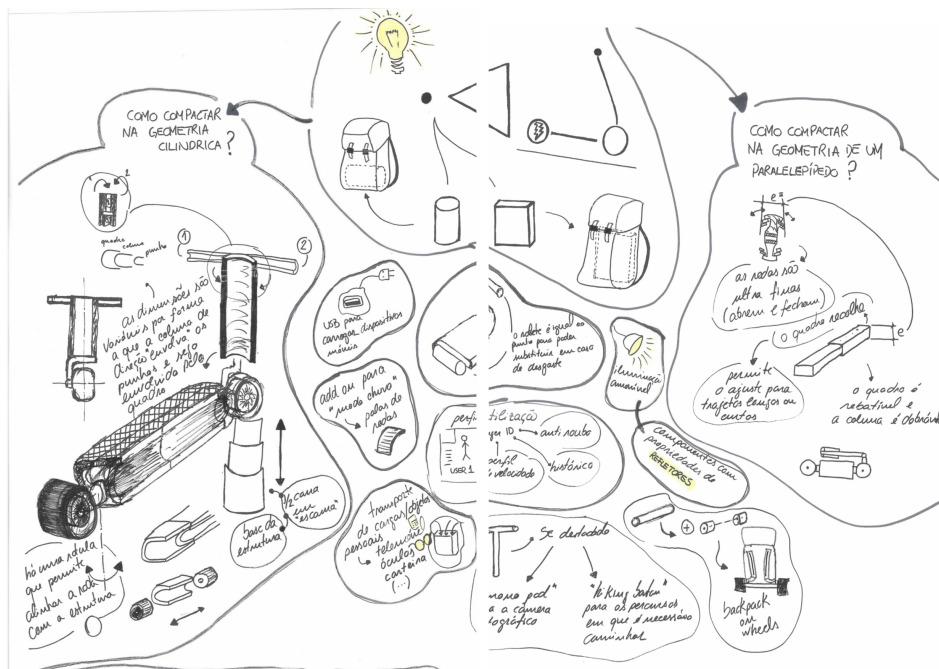 COMO COMPACTAR
NA GEOMETRIA
CILINDRICA ?
quadro
coluna
punho
1
2
as dimensões são
variáveis por forma
a que a coluna de
direção "envolva" os
punhos e seja
envolvida pelo
quadro
1/2 cana
em
"escama"
base da
estrutura
há uma rótula
que permite
alinhar a roda
com a estrutura
usb para
carregar dispositivos
móveis
add on para
"modo chuva"
palas de
rodas
transporte
de cargas/objetos
pessoais
telemóvel
óculos
carteira
(...)
perfi
USER 1
o rolete é igual ao
punho para poder
substituir em caso
de desgaste
iluminação
amovível
tilização
ger ID
anti roubo
perfil
velocidade
histórico
componentes com
propriedades de
REFLETORES
Se destacado
"mono pod"
a a câmera
tográfico
"hiking baton"
para os percursos
em que é necessário
caminhar
backpack
on
wheels
COMO COMPACTAR
NA GEOMETRIA DE UM
PARALELEPÍPEDO ?
e
as rodas são
ultra finas
(abrem e fecham)
o quadro recolhe
e
permite
o ajuste para
trajetos longos ou
curtos
o quadro é
rebatível e
a coluna é dobrável